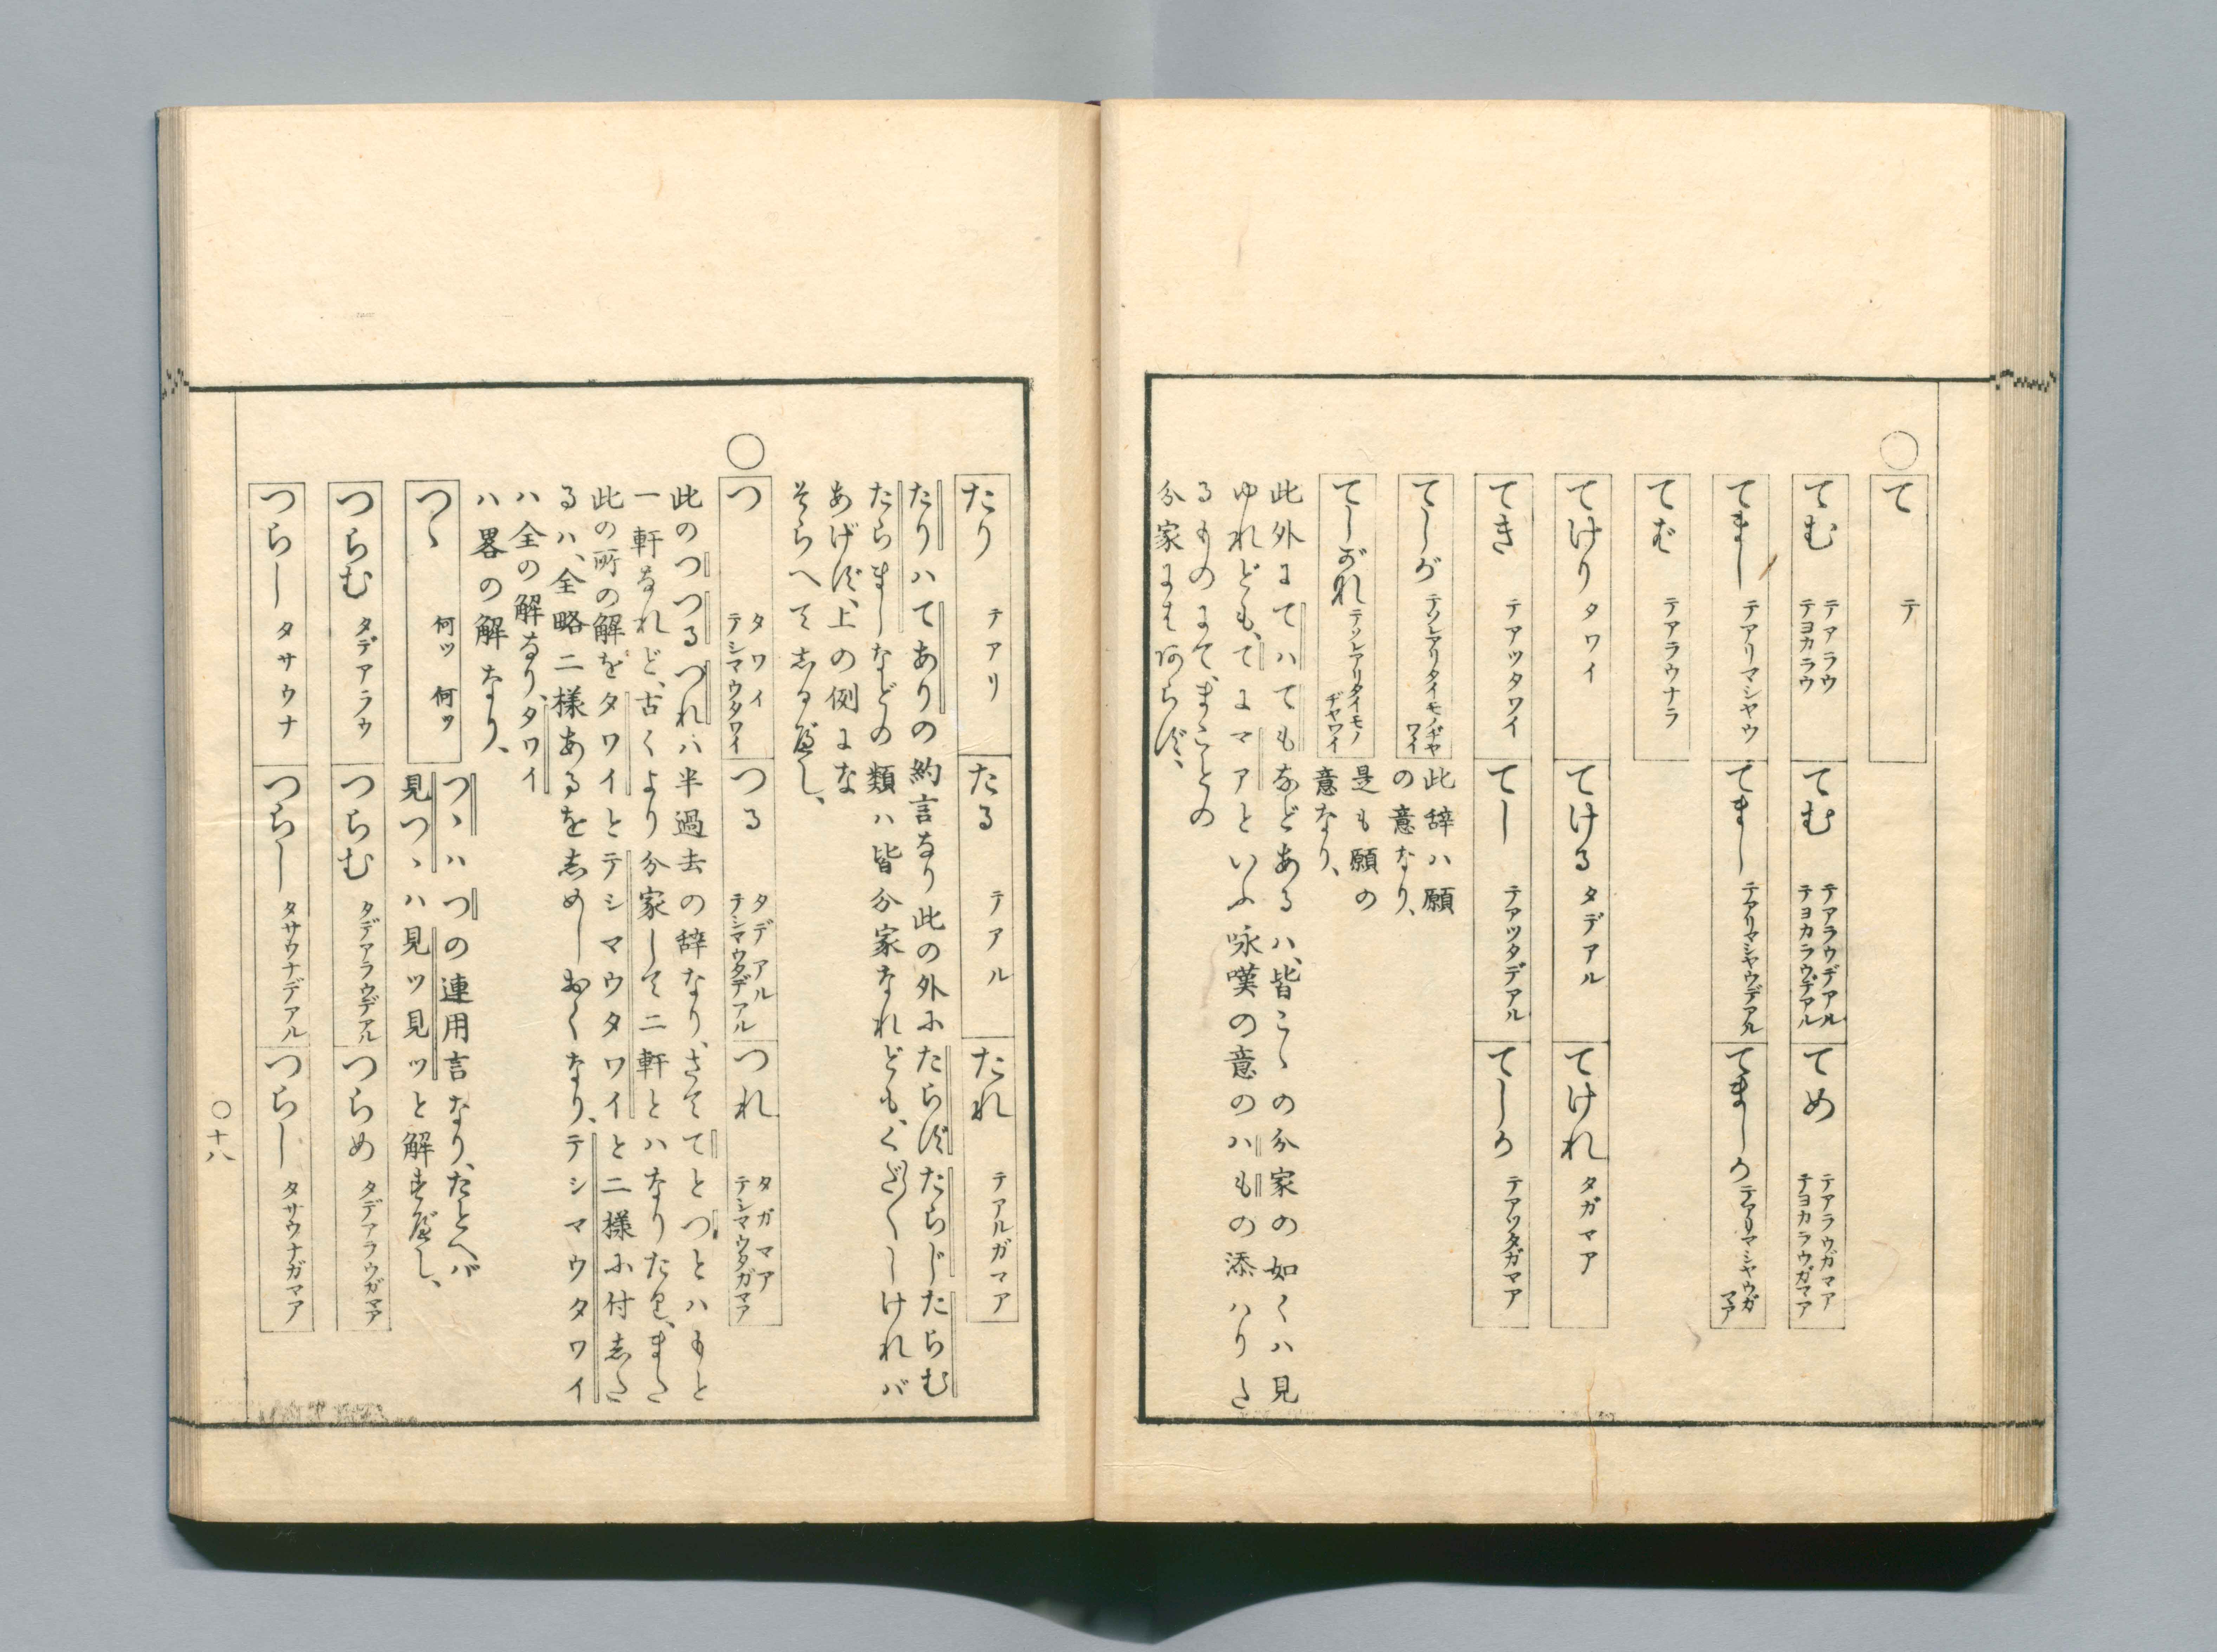 ○て テ
てむ テアラウ テヨカラウ てむ テアラウデアル テヨカラウデアル てめ テアラウガマア テヨカラウガマア
てまし テアリマシヤウ てまし テアリマシヤウデアル てましか テアリマシヤウガマア
てば テアラウナラ
てけり タワイ てける タデアル てけれ タガマア
てき テアツタワイ てし テアツタデアル てしか テアツタガマア
てしが テソレアリタイモノヂヤワイ 此辞ハ願の意なり、
てしがれ テソレアリタイモノヂヤワイ 是も願の意なり、
此外にてハてもなどあるハ、皆こゝの分家の如くハ見
ゆれども、てにマアといふ咏嘆の意のハもの添ハりた
るものにて、まことの
分家にはあらず、
たり テアリ たる テアル たれ テアルガマア
たりハてありの約言なり此の外にたらずたらじたらむ
たらましなどの類ハ皆分家なれども、くだ〳〵しければ
あげず、上の例にな
そらへてしるべし、
○つ タワイ テシマウタワイ つる タデアル テシマウタデアル つれ タガマア テシマウタガマア
此のつつるつれハ半過去の辞なり、さててとつとハもと
一軒なれど、古くより分家して二軒とハなりたり、また
此の所の解をタワイとテシマウタワイと二様に付した
るハ、全略二様あるをしめしおくなり、テシマウタワイ
ハ全の解なり、タワイ
ハ畧の解なり、
つゝ 何ッ 何ッ つゝハつの連用言なり、たとへバ
見つゝハ見ッ見ッと解すべし、
つらむ タデアラウ つらむ タデアラウデアル つらめ タデアラウガマア
つらし タサウナ つらし タサウナデアル つらし タサウナガマア
○十八